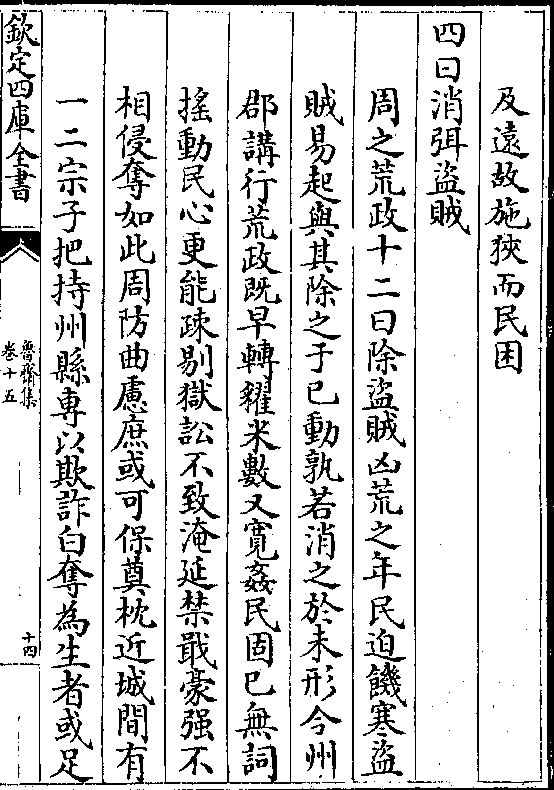 及遠故施狹而民困
四曰消弭盜賊
周之荒政十二曰除盜賊凶荒之年民迫饑寒盜
賊易起與其除之于已動孰若消之於未形今州
郡講行荒政既早轉糴米數又寛姦民固已無詞
搖動民心更能疎剔獄訟不致淹延禁戢豪强不
相侵奪如此周防曲慮庶或可保奠枕近城間有
一二宗子把持州縣專以欺詐白奪為生者或足
欽定四庫全書
魯齋集
卷十五
十四